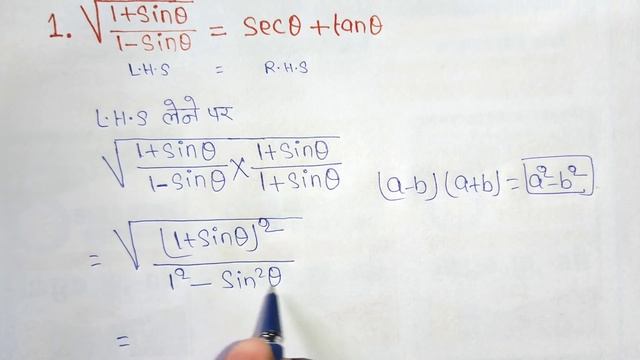 1. √(1+sinθ / 1-sinθ) = secθ + tanθ
L.H.S = R.H.S
L.H.S लेने पर
√(1+sinθ / 1-sinθ × 1+sinθ / 1+sinθ)
(a-b) (a+b) = a²-b²
= √((1+sinθ)² / 1² - sin²θ)
=